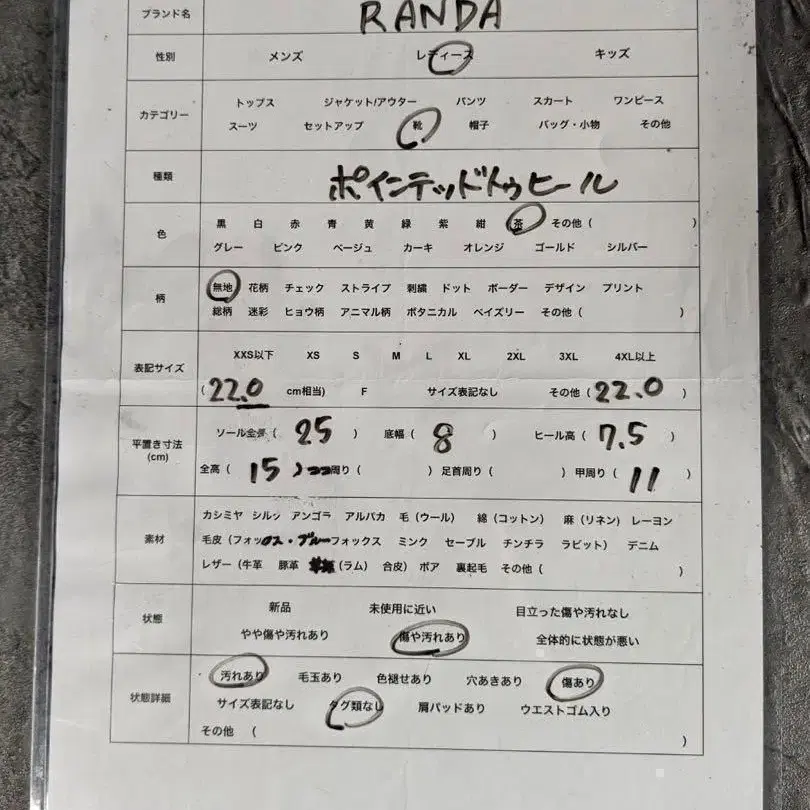 ブランド名 RANDA
性別 メンズ レディース キッズ
カテゴリー トップス ジャケット/アウター パンツ スカート ワンピース
スーツ セットアップ 靴 帽子 バッグ・小物 その他
種類 ポインテッドトゥヒール
色 黒 白 赤 青 黄 緑 紫 紺 茶 その他 ( )
グレー ピンク ベージュ カーキ オレンジ ゴールド シルバー
柄 無地 花柄 チェック ストライプ 刺繍 ドット ボーダー デザイン プリント
総柄 迷彩 ヒョウ柄 アニマル柄 ボタニカル ペイズリー その他 ( )
表記サイズ XXS以下 XS S M L XL 2XL 3XL 4XL以上
( 22.0 cm相当) F サイズ表記なし その他 ( 22.0 )
平置き寸法 (cm) ソール全長 ( 25 ) 底幅 ( 8 ) ヒール高 ( 7.5 )
全高 ( 15 ) 周り ( ) 足首周り ( ) 甲周り ( 11 )
素材 カシミヤ シルク アンゴラ アルパカ 毛 (ウール) 綿 (コットン) 麻 (リネン) レーヨン
毛皮 (フォックス・ブルーフォックス ミンク セーブル チンチラ ラビット) デニム
レザー (牛革 豚革 (ラム) 合皮) ボア 裏起毛 その他 ( )
状態 新品 未使用に近い 目立った傷や汚れなし
やや傷や汚れあり 傷や汚れあり 全体的に状態が悪い
状態詳細 汚れあり 毛玉あり 色褪せあり 穴あきあり 傷あり
サイズ表記なし タグ類なし 肩パッドあり ウエストゴム入り
その他 ( )